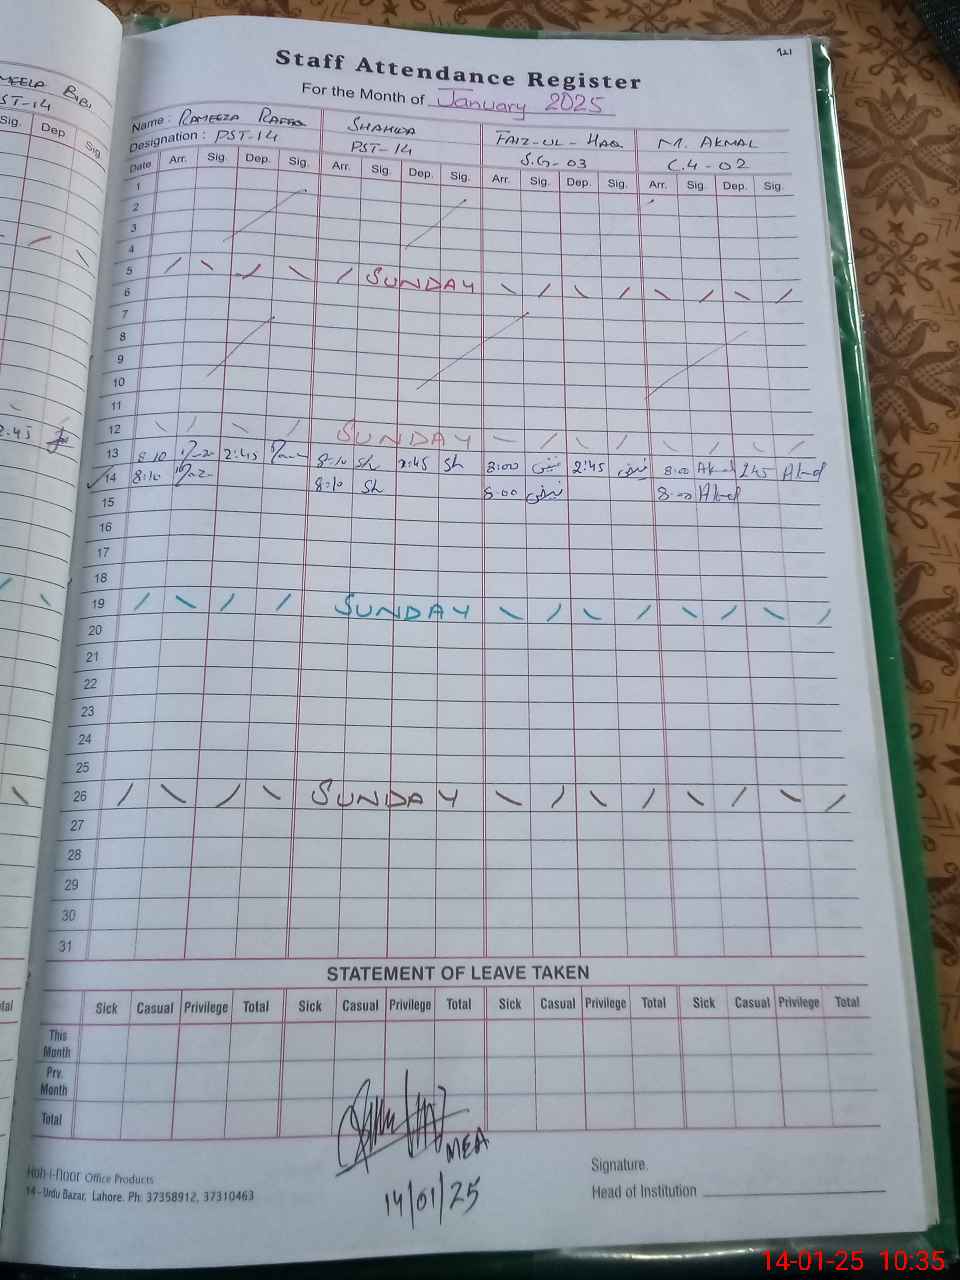 121
Staff Attendance Register
For the Month of January 2025
Name : RAMEEZA SHAHIDA FAIZ-UL-HAQ M. AKMAL
Designation : PST-14 PST-14 S.G-03 C.4-02
Date Arr. Sig. Dep. Sig. Arr. Sig. Dep. Sig. Arr. Sig. Dep. Sig. Arr. Sig. Dep. Sig.
1
2
3
4
5 SUNDAY
6
7
8
9
10
11
12 SUNDAY
13 8:10 2:45 8:10 Sh 2:45 Sh 8:00 فیض 2:45 فیض 8:00 Akmal 2:45 Akmal
14 8:10 8:10 Sh 8:00 فیض 8:00 Akmal
15
16
17
18
19 SUNDAY
20
21
22
23
24
25
26 SUNDAY
27
28
29
30
31
STATEMENT OF LEAVE TAKEN
Sick Casual Privilege Total Sick Casual Privilege Total Sick Casual Privilege Total Sick Casual Privilege Total
This Month
Prv. Month
Total
MEA
14/01/25
Koh-i-noor Office Products
14 - Urdu Bazar, Lahore. Ph: 37358912, 37310463
Signature.
Head of Institution
BIBI
ST-14
Sig. Dep Sig
2:45
14-01-25 10:35